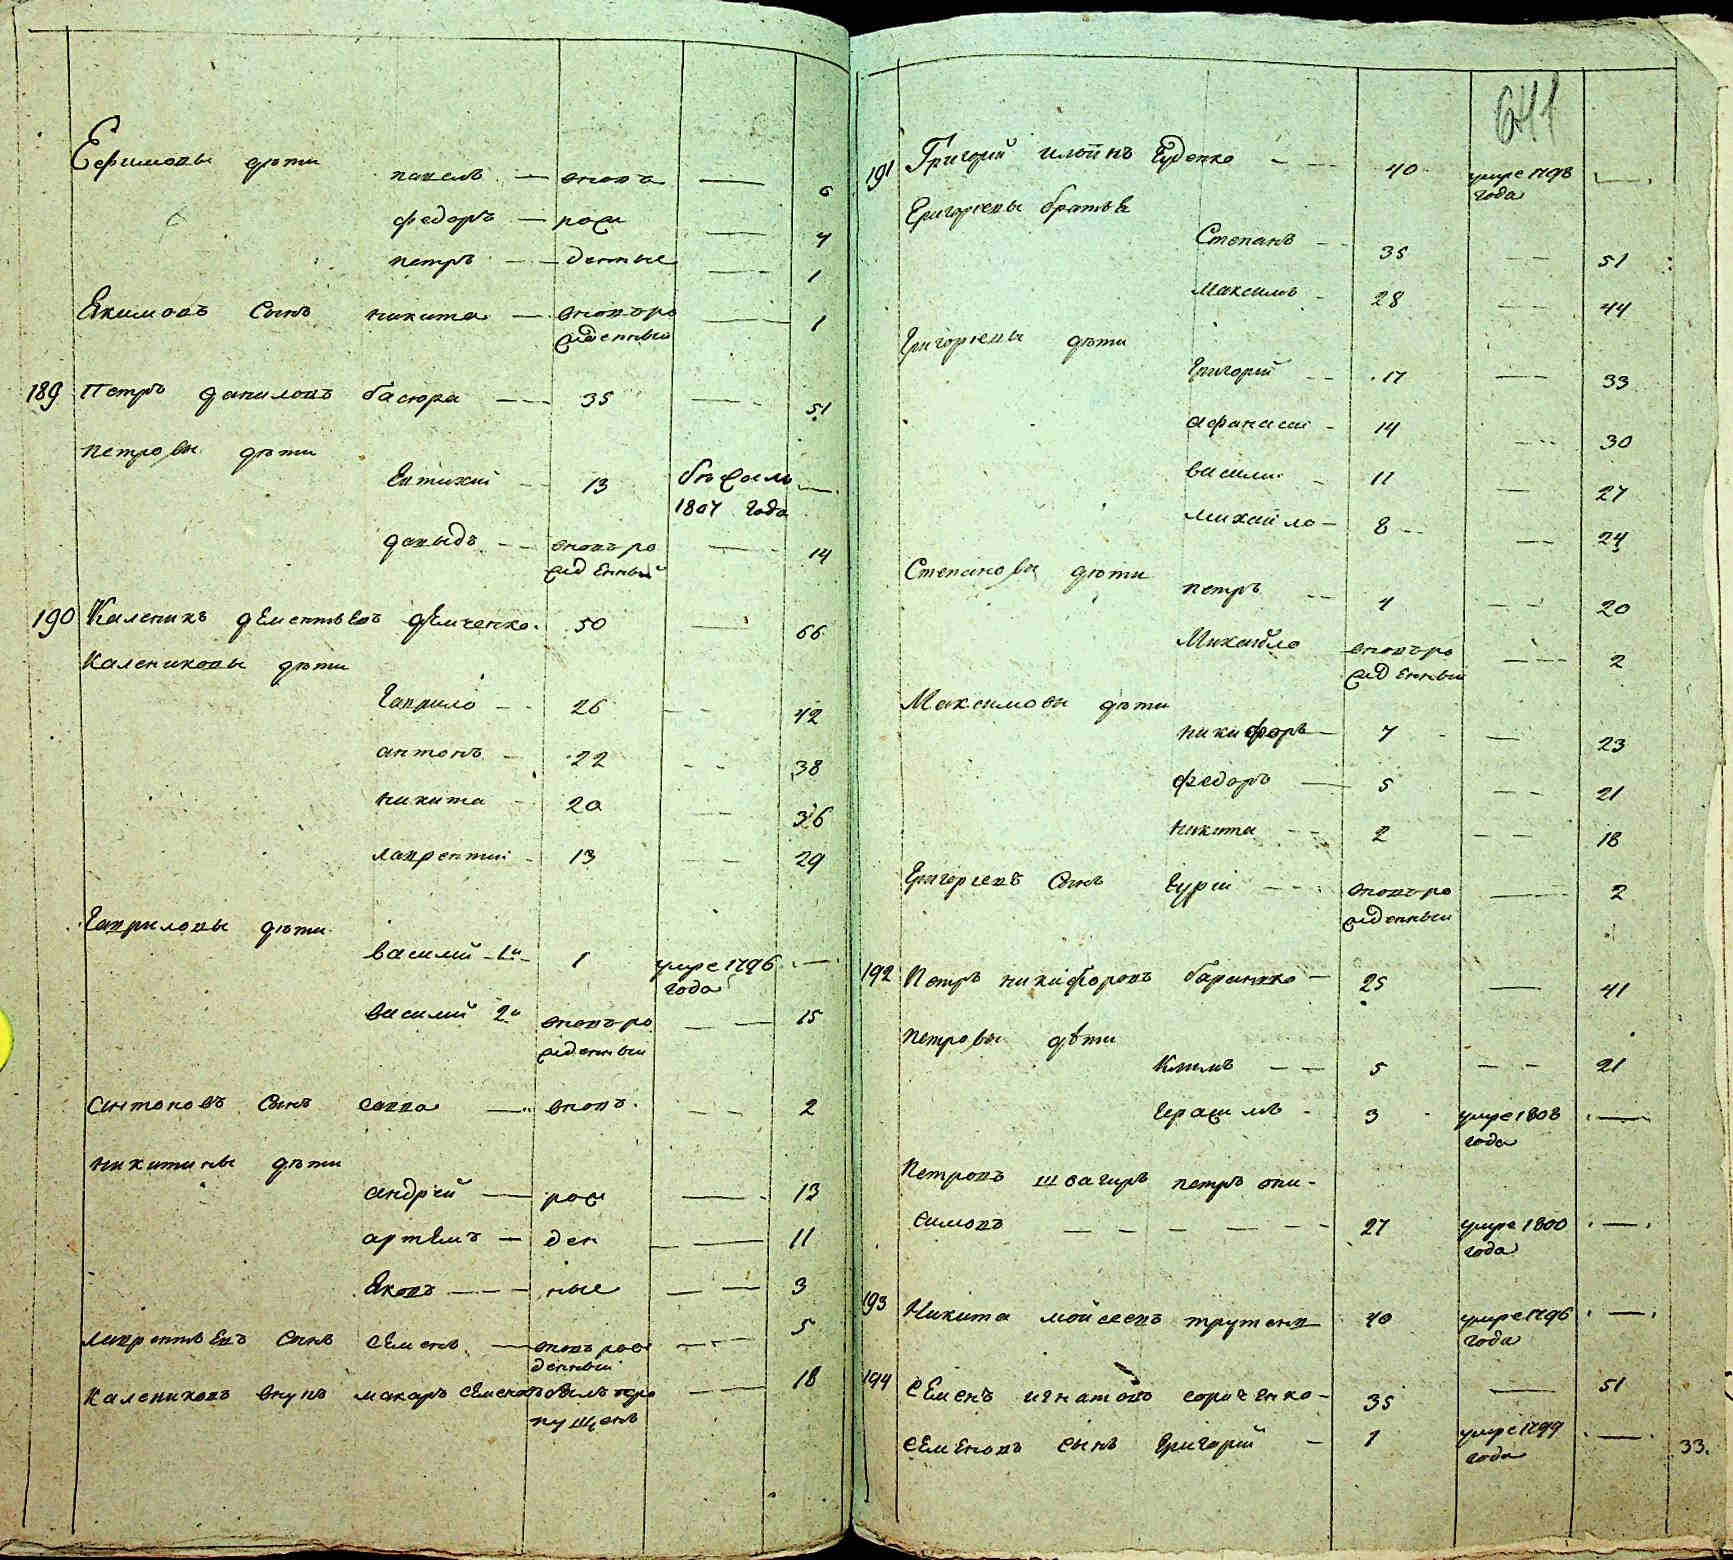 Ефимовы дѣти
павелъ — вновь — 6
федоръ — рож — 4
петръ — денные — 1
Якимовъ сынъ никита — вновьро — 1
жденный
189 Петръ даниловъ басюра — 35 — 51
петровы дѣти
Евтихий — 13 бѣжалъ —
1807 года
давыдъ — вновьро — 14
жденный
190 Каленикъ дементьевъ демченко 50 — 66
Калениковы дѣти
гаврило — 26 — 42
антонъ — 22 — 38
никита — 20 — 36
лаврентий — 13 — 29
гавриловы дѣти
василий 1й — 1 умре 1796 —
года
василий 2й вновьро — 15
жденный
антоновъ сынъ савва — вновь — 2
никитины дѣти
андрей — рож — 13
артемъ — ден — 11
Яковъ — ные — 3
лаврентьевъ сынъ семенъ — вновьрож — 5
денный
Калениковъ внукъ макаръ семеновъ былъ про — 18
пущенъ
641
191 Григорий ильинъ Гуденко — 40 умре 1798 —
года
григориевы братья
Степанъ — 35 — 51
Максимъ — 28 — 44
григориевы дѣти
григорий — 17 — 33
афанасий — 14 — 30
василий — 11 — 27
михайло — 8 — 24
Степановы дѣти
петръ — 4 — 20
Михайло вновьро — 2
жденный
Максимовы дѣти
никифоръ — 7 — 23
федоръ — 5 — 21
никита — 2 — 18
григориевъ сынъ гурий — вновьро — 2
жденный
192 Петръ никифоровъ — 25 — 41
петровы дѣти
Климъ — 5 — 21
герасимъ — 3 умре 1808 —
года
Петровъ швагиръ петръ они-
симовъ — 27 умре 1800 —
года
193 Никита мойсеевъ трутень 40 умре 1796 —
года
194 Семенъ игнатовъ сороченко — 35 — 51
семеновъ сынъ григорий — 1 умре 1799 —
года
33.